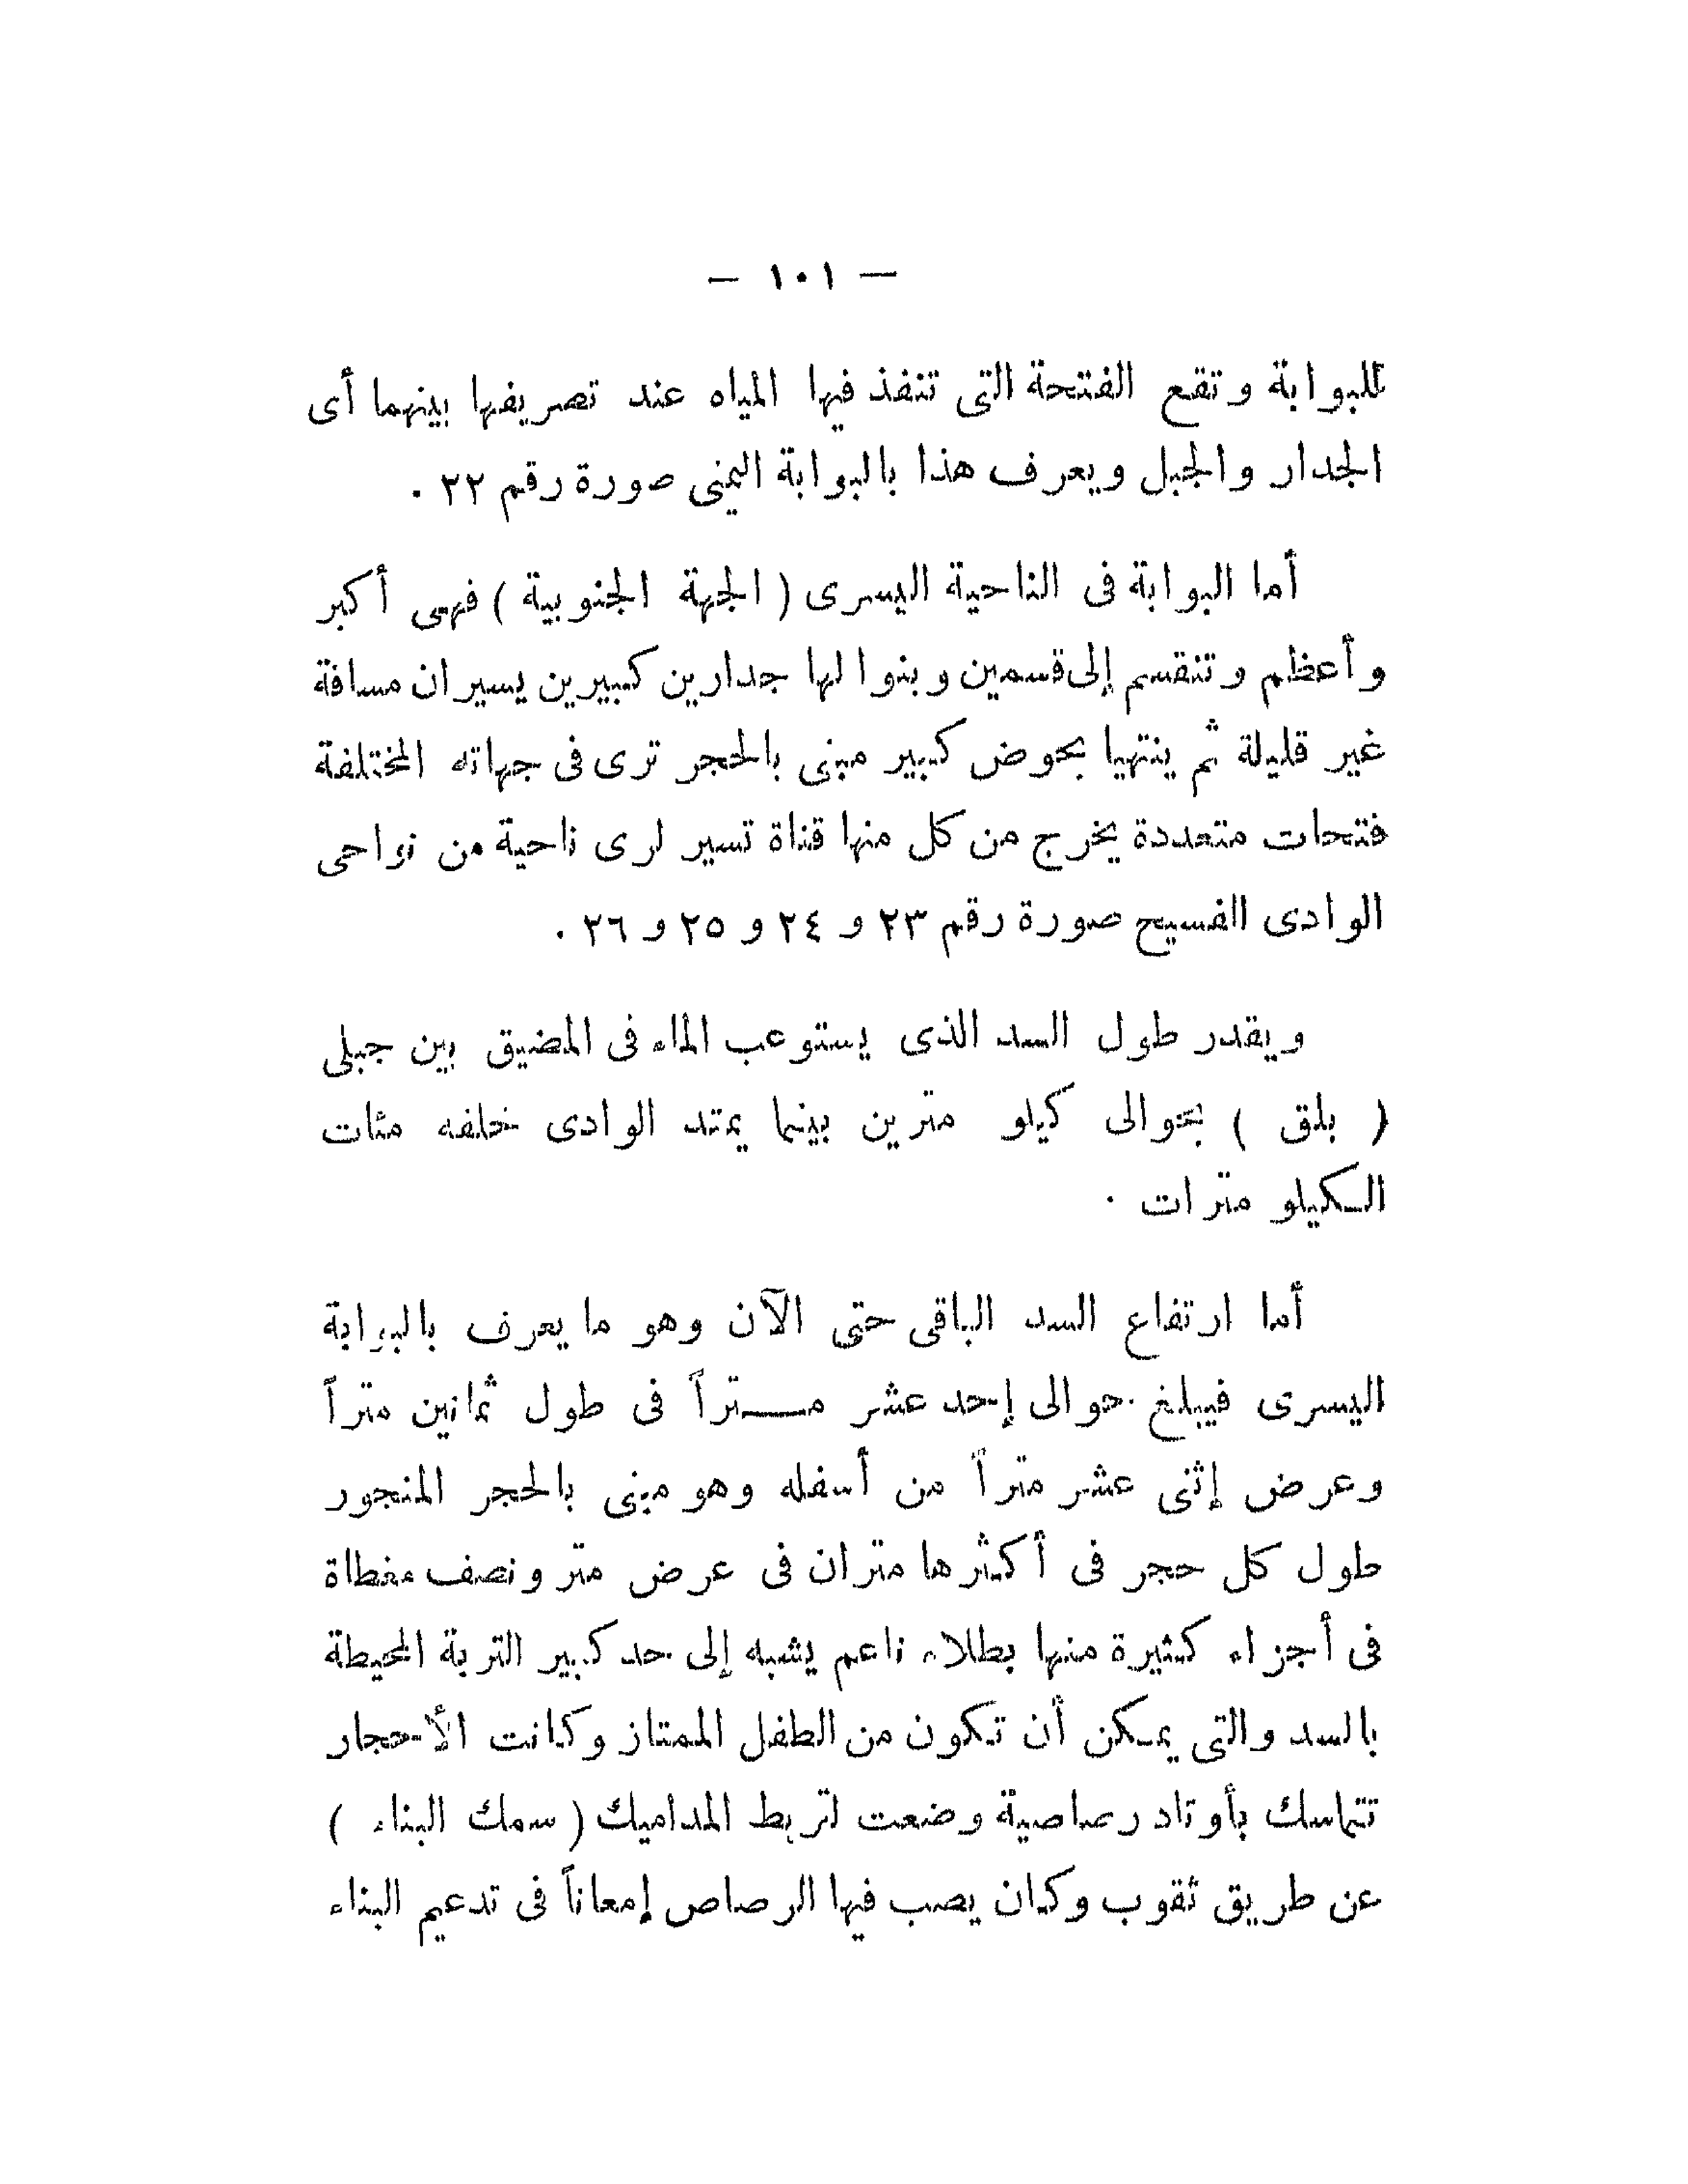 — ١٠١ —
للبوابة وتقع الفتحة التى تنفذ فيها المياه عند تصريفها بينهما أى
الجدار والجبل ويعرف هذا بالبوابة اليمنى صورة رقم ٢٢ .
أما البوابة فى الناحية اليسرى ( الجهة الجنوبية ) فهى أكبر
وأعظم وتنقسم إلى قسمين وبنوا لها جدارين كبيرين يسيران مسافة
غير قليلة ثم ينتهيا بحوض كبير مبنى بالحجر ترى فى جهاته المختلفة
فتحات متعددة يخرج من كل منها قناة تسير لرى ناحية من نواحى
الوادى الفسيح صورة رقم ٢٣ و ٢٤ و ٢٥ و ٢٦ .
ويقدر طول السد الذى يستوعب الماء فى المضيق بين جبلى
( بلق ) بحوالى كيلو مترين بينما يمتد الوادى خلفه مئات
الكيلو مترات .
أما ارتفاع السد الباقى حتى الآن وهو ما يعرف بالبوابة
اليسرى فيبلغ حوالى إحد عشر متراً فى طول ثمانين متراً
وعرض إثنى عشر متراً من أسفله وهو مبنى بالحجر المنجور
طول كل حجر فى أكثرها متران فى عرض متر ونصف مغطاة
فى أجزاء كثيرة منها بطلاء ناعم يشبه إلى حد كبير التربة المحيطة
بالسد والتى يمكن أن تكون من الطفل الممتاز وكانت الأحجار
تتماسك بأوتاد رصاصية وضعت لتربط المداميك ( سمك البناء )
عن طريق ثقوب وكان يصب فيها الرصاص إمعاناً فى تدعيم البناء